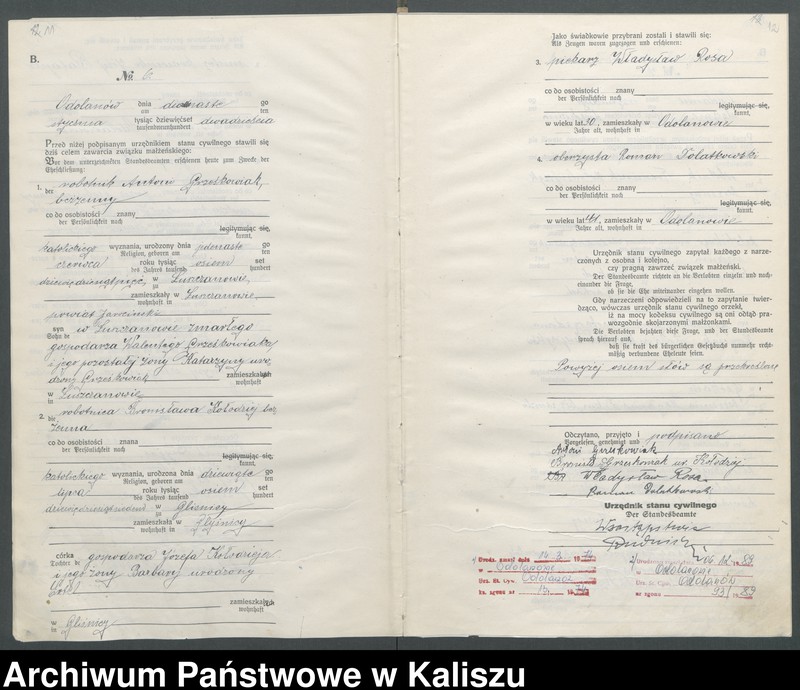 B.
№ 6
Odolanów dnia dwunastego
am ten
stycznia tysiąc dziewięćset dwudziestego
tausendneunhundert
Przed niżej podpisanym urzędnikiem stanu cywilnego stawili się
dziś celem zawarcia związku małżeńskiego:
Vor dem unterzeichneten Standesbeamten erschienen heute zum Zweck der
Eheschließung:
1. robotnik Antoni Grześkowiak,
der
bezżenny
co do osobistości znany
der Persönlichkeit nach
legitymując się,
kannt,
katolickiego wyznania, urodzony dnia go
Religion, geboren am ten
czerwca roku tysiąc osiem set
des Jahres tausend hundert
dziewięćdziesiąt pięć, w
zu
zamieszkały w
wohnhaft in
powiat jarociński
syn w zmarłego
Sohn de
gospodarza Walentego Grześkowiaka
i jego pozostałej żony Katarzyny uro-
dzonej zamieszkałych
wohnhaft
w
in
2. robotnica Bronisława Kołodziej bez
die
żenna
co do osobistości znana
der Persönlichkeit nach
legitymując się,
kannt,
katolickiego wyznania, urodzona dnia dziewiątego
Religion, geboren am ten
lipca roku tysiąc osiem set
des Jahres tausend hundert
w Gliśnicy
zu
zamieszkała w Gliśnicy
wohnhaft in
córka gospodarza Józefa Kołodzieja
Tochter de
i jego żony Barbary urodzonej
zamieszkałych
wohnhaft
w Gliśnicy
in
12
Jako świadkowie przybrani zostali i stawili się:
Als Zeugen waren zugezogen und erschienen:
3. piekarz Władysław Rosa
co do osobistości znany
der Persönlichkeit nach
legitymując się,
kannt,
w wieku lat 30, zamieszkały w Odolanowie
Jahre alt, wohnhaft in
4. oberżysta Roman Dolatkowski
co do osobistości znany
der Persönlichkeit nach
legitymując się,
kannt,
w wieku lat 41, zamieszkały w Odolanowie
Jahre alt, wohnhaft in
Urzędnik stanu cywilnego zapytał każdego z narze-
czonych z osobna i kolejno,
czy pragną zawrzeć związek małżeński.
Der Standesbeamte richtete an die Verlobten einzeln und nach-
einander die Frage,
ob sie die Ehe miteinander eingehen wollen.
Gdy narzeczeni odpowiedzieli na to zapytanie twier-
dząco, wówczas urzędnik stanu cywilnego orzekł,
iż na mocy kodeksu cywilnego są oni odtąd pra-
wozgodnie skojarzonymi małżonkami.
Die Verlobten bejahten diese Frage, und der Standesbeamte
sprach hierauf aus,
daß sie kraft des bürgerlichen Gesetzbuchs nunmehr recht-
mäßig verbundene Eheleute seien.
Powyżej osiem słów są przekreślone
Odczytano, przyjęto i podpisano
Vorgelesen, genehmigt und
Antoni Grześkowiak
Bronisł. Grześkowiak ur. Kołodziej
Władysław Rosa
Roman Dolatkowski
Urzędnik stanu cywilnego
Der Standesbeamte
W zastępstwie
w Odolanowie
Urz. St. Cyw. Odolanów
w Odolanowie
Urz. St. Cyw. Odolanów
Archiwum Państwowe w Kaliszu